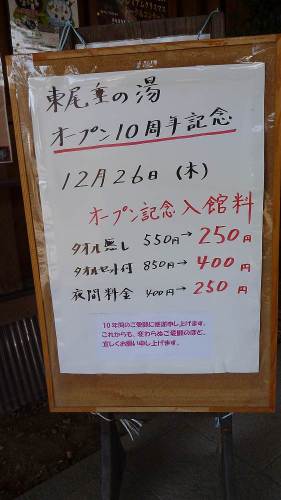 東尾垂の湯
オープン10周年記念
12月26日 (木)
オープン記念入館料
タオル無し 550円→250円
タオルセット付 850円→400円
夜間料金 400円→250円
10年間のご愛顧に感謝申し上げます。
これからも、変わらぬご愛顧のほど、
宜しくお願い申し上げます。